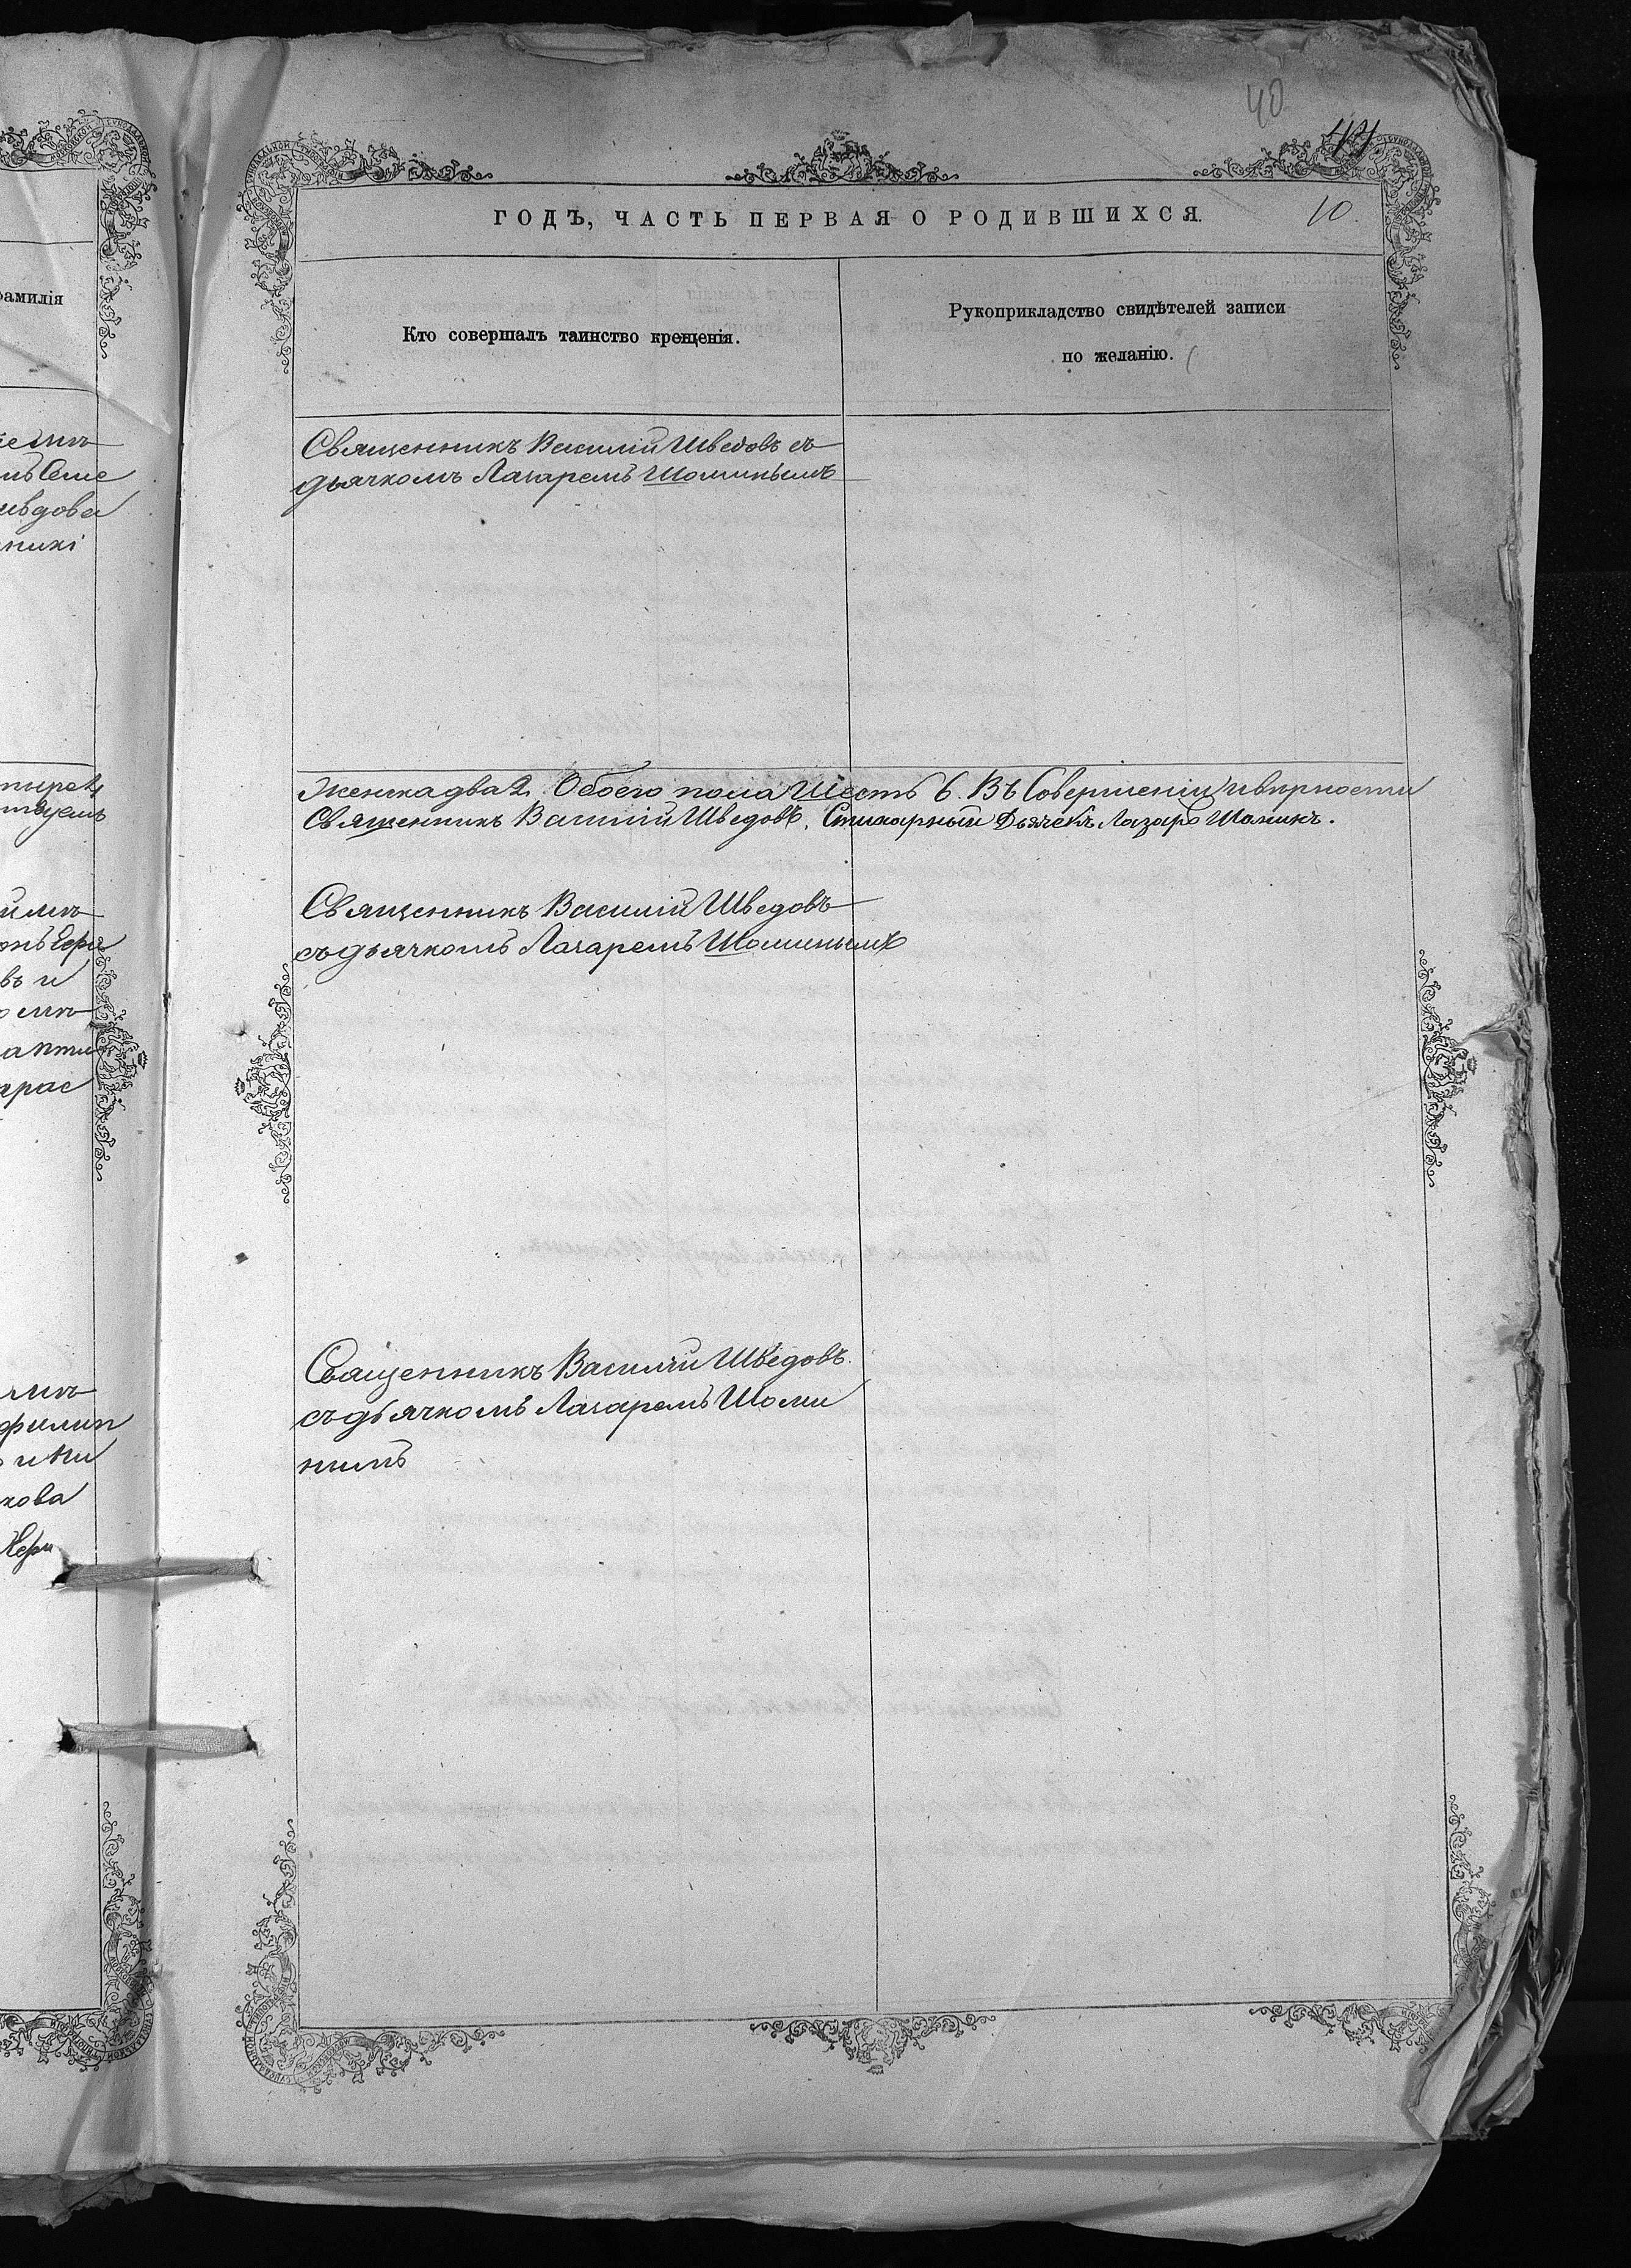 40
10.
ГОДЪ, ЧАСТЬ ПЕРВАЯ О РОДИВШИХСЯ.
фамилія
Кто совершалъ таинство крещенія.
Рукоприкладство свидѣтелей записи
по желанію.
Священникъ Василій Шведовъ съ
дьячкомъ Лазаремъ Шоминымъ
Женска два 2. Обоего пола Шесть 6. Въ Совершеніи и вѣрности
Священникъ Василій Шведовъ. Стихарный Дьячекъ Лазарь Шоминъ.
Священникъ Василій Шведовъ
съ дьячкомъ Лазаремъ Шоминымъ
Сващенникъ Василій Шведовъ.
съ дьячкомъ Лазаремъ Шоми
нымъ